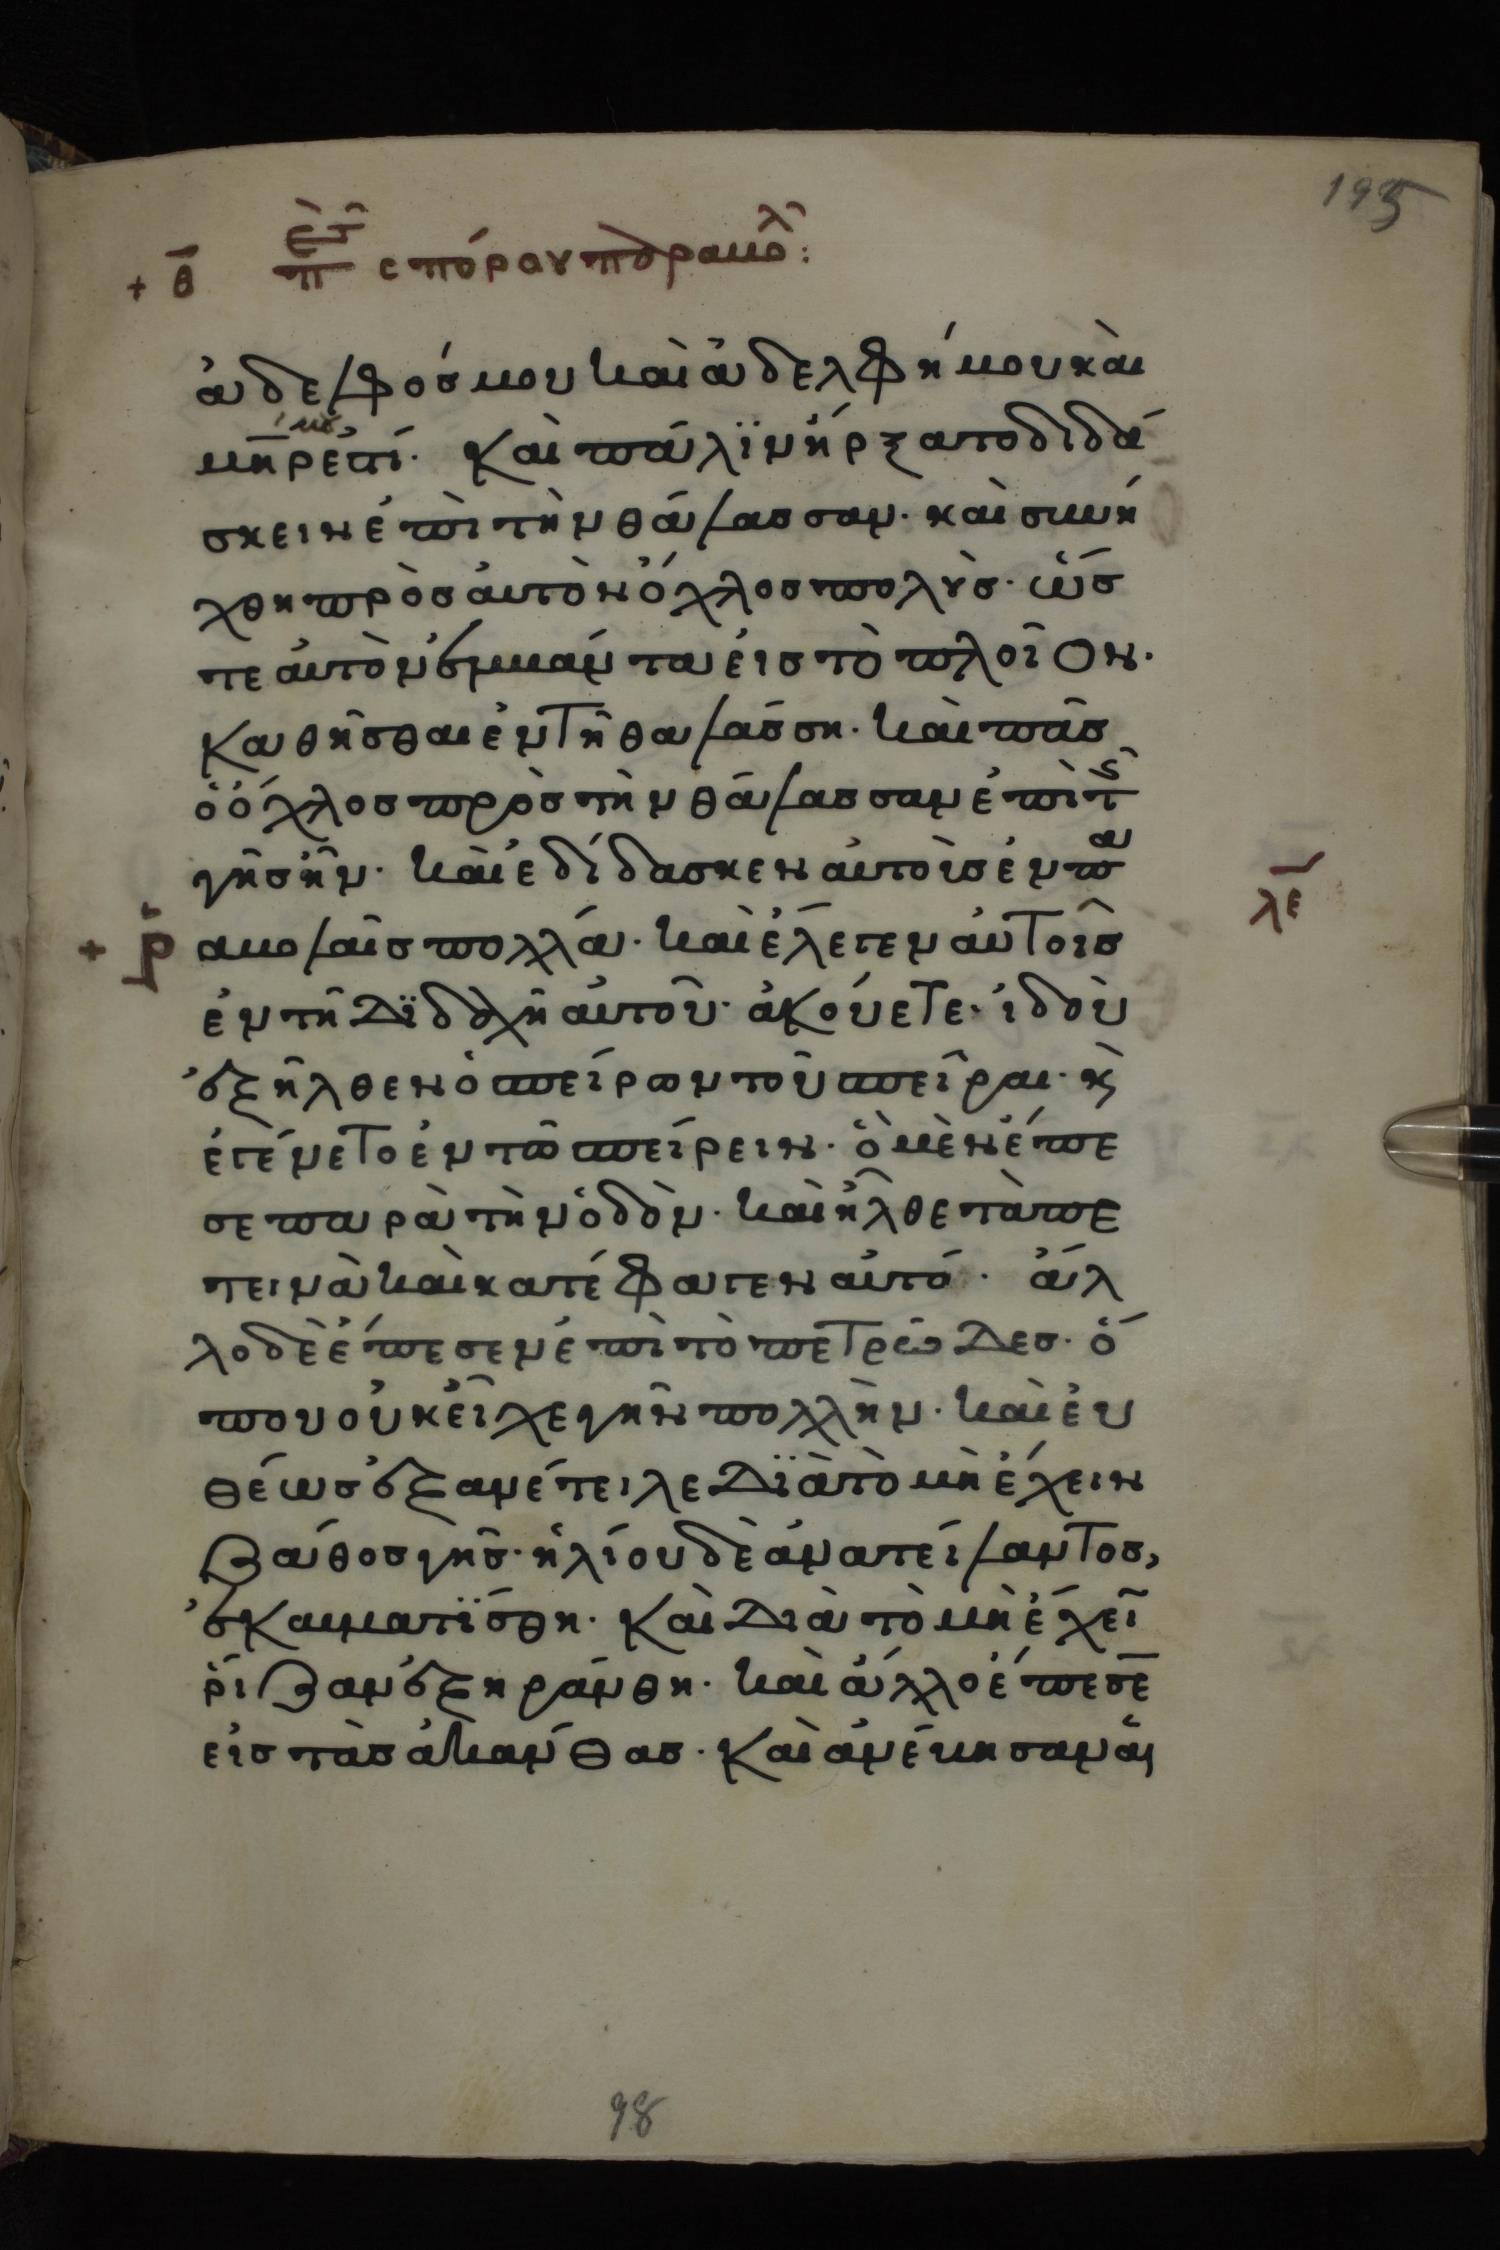 195
+ θ̄ πε τ̂ σπόρου παραβολ̂:
ἀδελφόσ μου καὶ ἀδελφή μου καὶ
μηρ μου ἐστί· Καὶ πάλϊν ἤρξατο διδά
σκειν ἐπὶ τὴν θάλασσαν· καὶ συνή
χθη πρὸσ αὐτὸν ὄχλοσ πολὺσ· ὥσ
τε αὐτὸν ἐμβάντα εἰσ τὸ πλοῖον·
καθῆσθαι ἐν τῆ θαλάσση· καὶ πᾶσ
ὁ ὄχλοσ πρὸσ τὴν θάλασσαν ἐπὶ τῆς
γῆσ ἦν· καὶ ἐδίδασκεν αὐτοὶσ ἐν πα
ραβολαῖσ πολλά· καὶ ἔλεγεν αὐτοῖσ
ἐν τῆ Δϊδαχῆ αὐτοῦ· ἀκούετε· ἰδοὺ
ἐξῆλθεν ὁ σπείρων τοῦ σπεῖραι· κὶ
ἐγένετο ἐν τῶ σπείρειν· ὃ μὲν ἔπε
σε παρὰ τὴν ὁδὸν· καὶ ἦλθε τὰ πε
τεινὰ καὶ κατέφαγεν αὐτό· ἄλ
λο δὲ ἔπεσεν ἐπὶ τὸ πετρῶδεσ· ὅ
που οὐκ εἶχε γῆν πολλὴν· καὶ εὐ
θέωσ ἐξανέτειλε Δϊὰ τὸ μὴ ἔχειν
βάθοσ γῆσ· ἡλίου δὲ ἀνατείλαντοσ,
ἐκαυματϊσθη· Καὶ Διὰ τὸ μὴ ἔχεῑ
ῥίβαν ἐξηράνθη· καὶ ἄλλο ἔπεσε̄
εἰσ τὰσ ἀκάνθασ· Καὶ ἀνέβησαν αἱ
λε
98